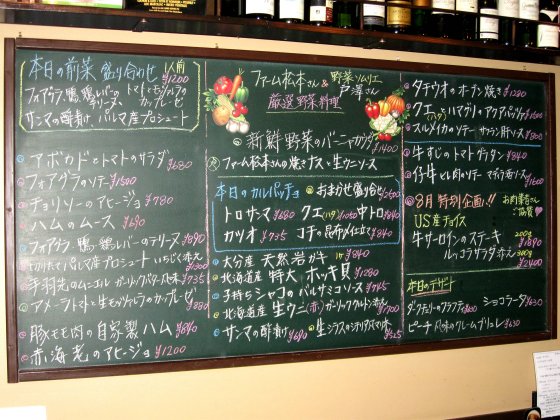 本日の前菜 盛り合わせ 1人前 ¥1200
フォアグラ、鴨、鶏レバーのテリーヌ
トマトとモッツァレラのカプレーゼ
サンマの酢漬け、パルマ産プロシュート
アボカドとトマトのサラダ ¥680
フォアグラのソテー ¥1500
チョリソーのアヒージョ ¥780
ハムのムース ¥690
フォアグラ、鴨、鶏レバーのテリーヌ ¥890
切りたてパルマ産プロシュート いちじく添え ¥1300
手羽先のコンフィ ガーリックバター風味 ¥735
アメーラトマトと生モッツァレラのカプレーゼ ¥880
豚モモ肉の自家製ハム ¥840
赤海老のアヒージョ ¥1200
ファーム松本さん & 野菜ソムリエ 芦澤さん
厳選野菜料理
新鮮野菜のバーニャカウダ ¥1400
ファーム松本さんの焼きナス、生ウニソース
本日のカルパッチョ
おまかせ盛り合せ ¥1500
トロサンマ ¥680 クエ(ハタ) ¥1050 中トロ ¥840
カツオ ¥735 コチの昆布〆仕立て ¥840
大分産 天然岩ガキ ¥840
北海道産 特大 ホッキ貝 ¥1280
子持ちシャコのバルサミコソース ¥945
北海道産 生ウニ(赤) ガーリックタルト添え ¥1700
サンマの酢漬け ¥690
生シラスのシチリア風マリネ ¥525
タチウオのオーブン焼き ¥1280
クエ(ハタ)とハマグリのアクアパッツァ ¥1500
スルメイカのソテー サフラン汁ソース ¥800
牛すじのトマトグラタン ¥840
仔牛ヒレ肉のソテー マデラ酒ソース ¥1600
8月 特別企画!!
お肉業者さんご協賛
US産チョイス
牛サーロインのステーキ 200g ¥1890
ルッコラサラダ添え 300g ¥2400
本日のデザート
ダークチェリーのクラフティ ¥630 ショコラータ ¥630
ピーチ風味のクレームブリュレ ¥630